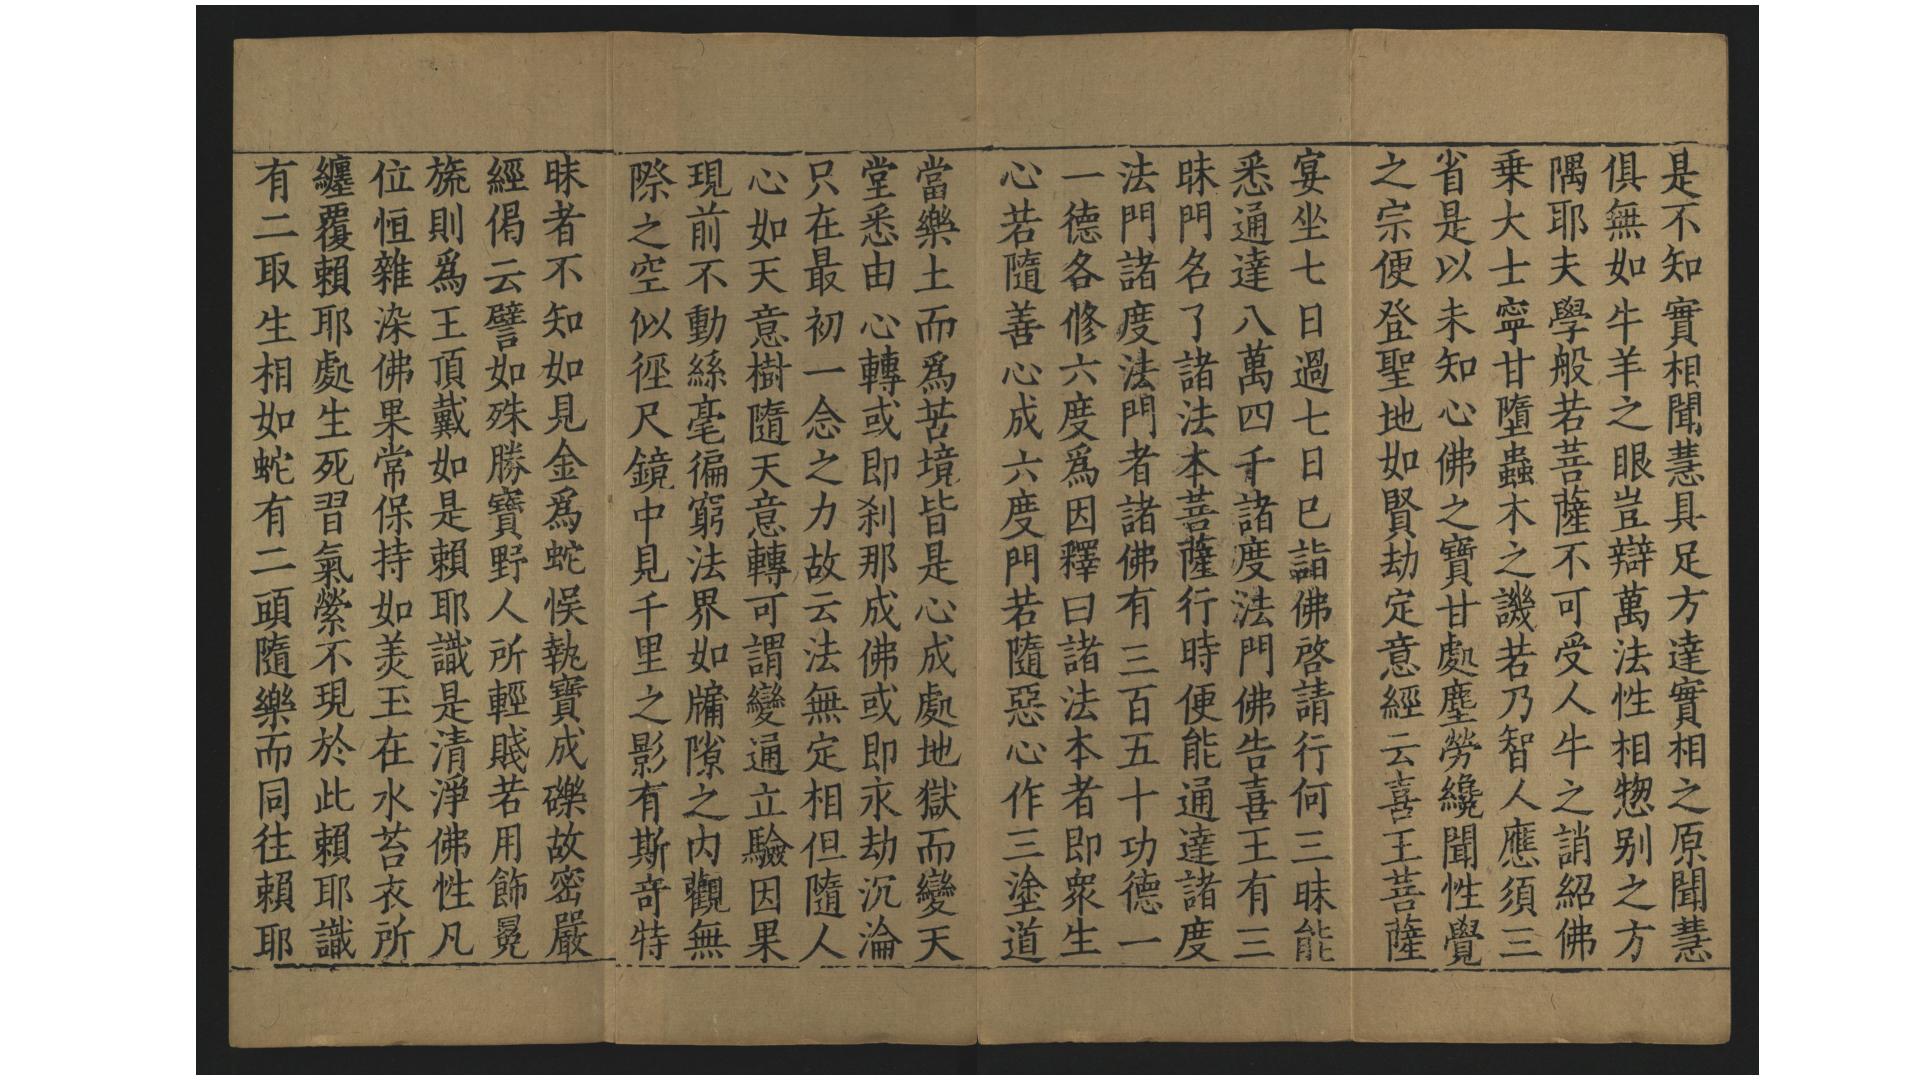 是不知實相聞慧具足方達實相之原聞慧
俱無如牛羊之眼豈辯萬法性相惣別之方
隅耶夫學般若菩薩不可受人牛之誚紹佛
乗大士寜甘墮蟲木之譏若乃智人應須三
省是以未知心佛之寶甘處塵勞纔聞性覺
之宗便登聖地如賢劫定意經云喜王菩薩
宴坐七日過七日已詣佛啓請行何三昧能
悉通達八萬四千諸度法門佛告喜王有三
昧門名了諸法本菩薩行時便能通達諸度
法門諸度法門者諸佛有三百五十功德一
一德各修六度爲因釋曰諸法本者即衆生
心若隨善心成六度門若隨惡心作三塗道
當樂土而爲苦境皆是心成處地獄而變天
堂悉由心轉或即刹那成佛或即永劫沉淪
只在最初一念之力故云法無定相但隨人
心如天意樹隨天意轉可謂變通立驗因果
現前不動絲毫徧窮法界如牖隙之内觀無
際之空似徑尺鏡中見千里之影有斯竒特
昧者不知如見金爲蛇悮執寶成礫故密嚴
經偈云譬如殊勝寶野人所輕賤若用飾冕
旒則爲王頂戴如是賴耶識是清淨佛性凡
位恒雜染佛果常保持如美玉在水苔衣所
纏覆賴耶處生死習氣縈不現於此賴耶識
有二取生相如蛇有二頭隨樂而同往賴耶